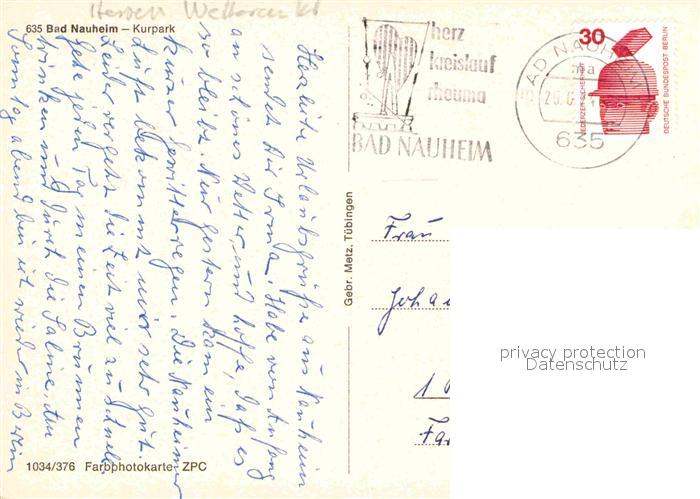 Hessen Wetterau Kr
635 Bad Nauheim – Kurpark
Herzliche Urlaubsgrüße aus Nauheim
sendet Dir Irma. Habe von Anfang
an schönes Wetter, und hoffe, daß es
so bleibt. Nur gestern kam ein
kurzer Gewitterregen. Die Nauheimer
Luft bekommt mir sehr gut.
Leider vergeht die Zeit viel zu schnell.
Gehe jeden Tag meinen Brunnen
trinken und durch die Saline. Am
Sonntag abend bin ich wieder in
1034/376 Farbphotokarte ZPC
Gebr. Metz, Tübingen
herz
kreislauf
rheuma
BAD NAUHEIM
BAD NAUHEIM
ma
635
30
JEDERZEIT SICHERHEIT
DEUTSCHE BUNDESPOST BERLIN
Frau
privacy protection
Datenschutz